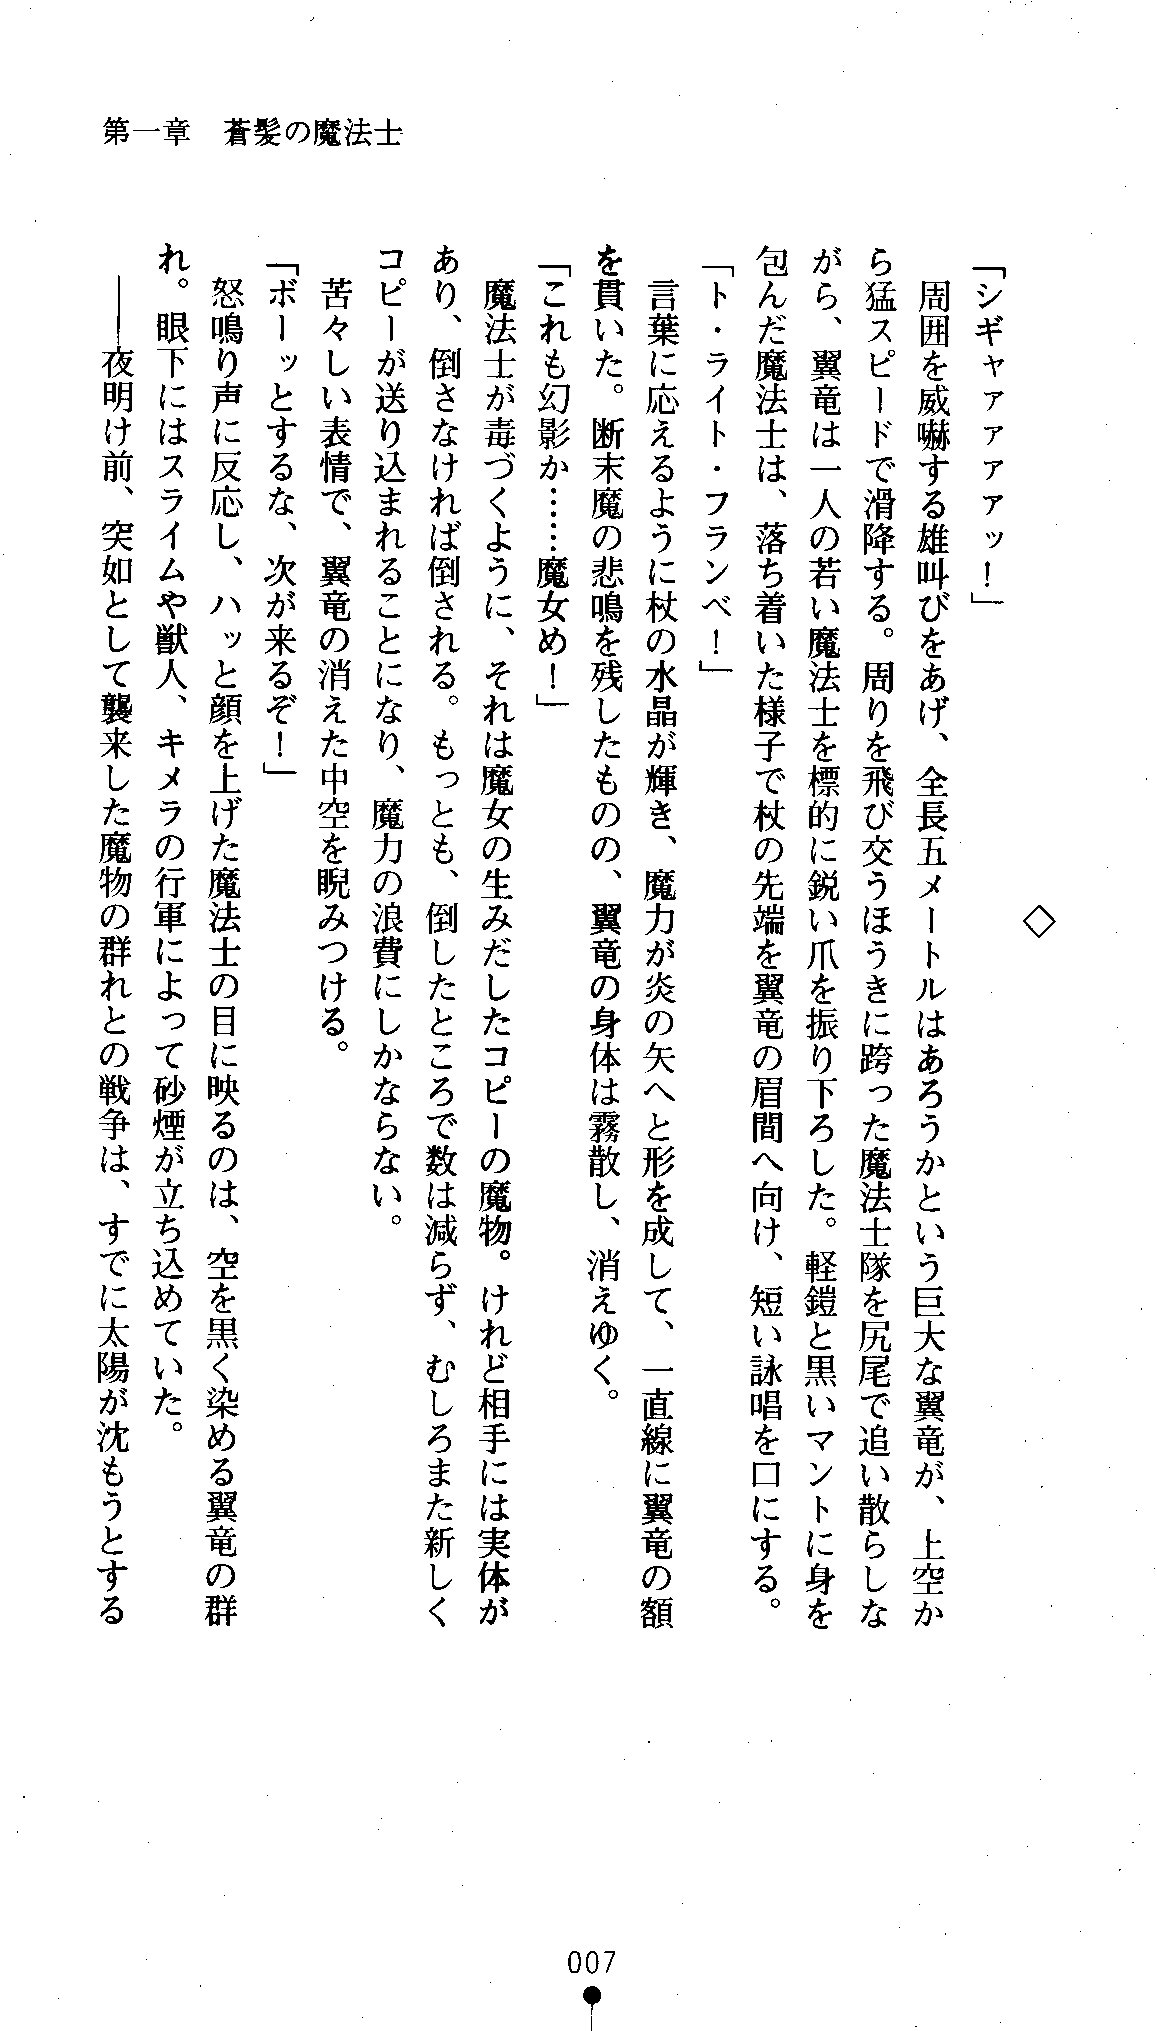 第一章　蒼髪の魔法士
◇
「シギャァァァァッ！」
　周囲を威嚇する雄叫びをあげ、全長五メートルはあろうかという巨大な翼竜が、上空か
ら猛スピードで滑降する。周りを飛び交うほうきに跨った魔法士隊を尻尾で追い散らしな
がら、翼竜は一人の若い魔法士を標的に鋭い爪を振り下ろした。軽鎧と黒いマントに身を
包んだ魔法士は、落ち着いた様子で杖の先端を翼竜の眉間へ向け、短い詠唱を口にする。
「ト・ライト・フランベ！」
　言葉に応えるように杖の水晶が輝き、魔力が炎の矢へと形を成して、一直線に翼竜の額
を貫いた。断末魔の悲鳴を残したものの、翼竜の身体は霧散し、消えゆく。
「これも幻影か……魔女め！」
　魔法士が毒づくように、それは魔女の生みだしたコピーの魔物。けれど相手には実体が
あり、倒さなければ倒される。もっとも、倒したところで数は減らず、むしろまた新しく
コピーが送り込まれることになり、魔力の浪費にしかならない。
　苦々しい表情で、翼竜の消えた中空を睨みつける。
「ボーッとするな、次が来るぞ！」
　怒鳴り声に反応し、ハッと顔を上げた魔法士の目に映るのは、空を黒く染める翼竜の群
れ。眼下にはスライムや獣人、キメラの行軍によって砂煙が立ち込めていた。
　――夜明け前、突如として襲来した魔物の群れとの戦争は、すでに太陽が沈もうとする
007